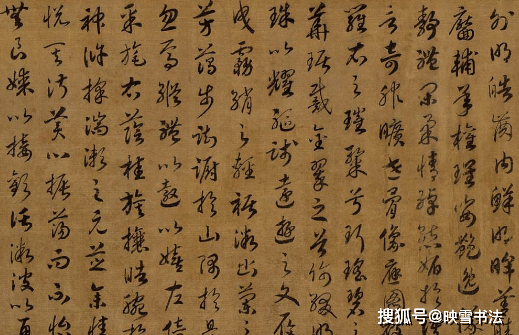 外朗皓齒內鮮明眸善
靨輔承權瓌姿艷逸
靜體閑柔情綽態媚於
言奇服曠世骨像應圖
羅衣之璀粲兮珥瑤碧之
華琚戴金翠之首飾綴明
珠以耀軀踐遠遊之文履
曳霧綃之輕裾微幽蘭之
芳藹步踟躕於山隅於是
忽焉縱體以遨以嬉左倚
采旄右蔭桂旗攘皓腕於
神滸採湍瀨之元芝余情
悅其淑美心振蕩而不怡
無良媒以接歡託微波以
搜狐号@映雪书法